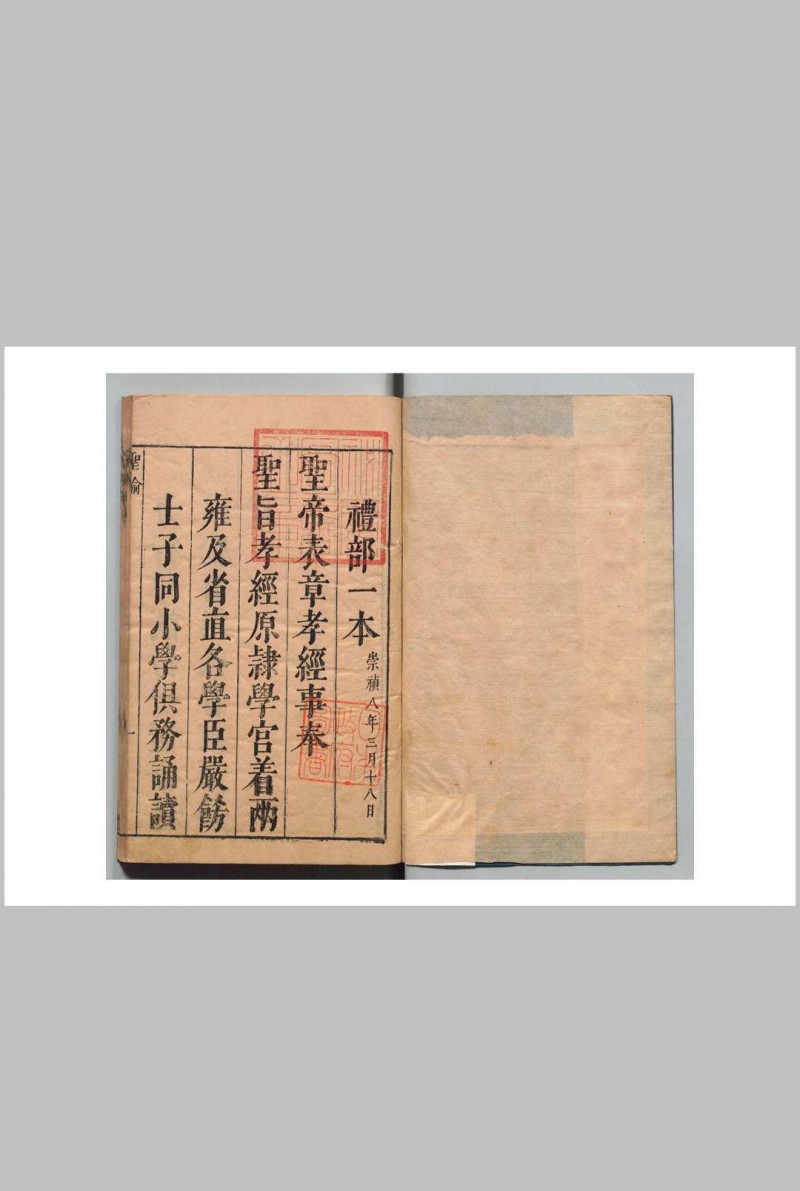 禮部一本崇禎八年三月十八日
聖帝表章孝經事奉
聖旨孝經原隷學官着兩
雍及省直各學臣嚴餝
士子同小學俱務誦讀
聖諭
一